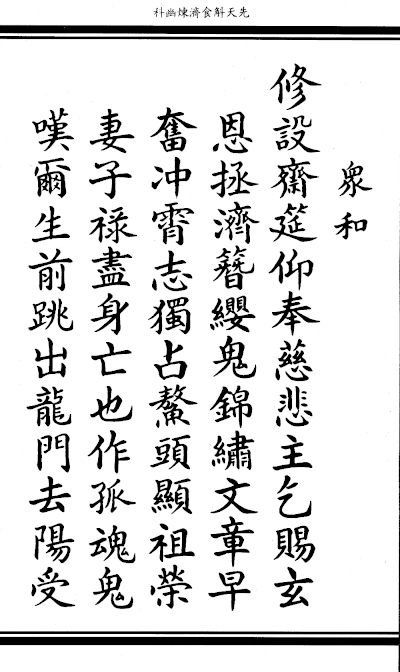 先天斛食濟煉幽科
眾和
修設齋筵仰奉慈悲主乞賜玄
恩拯濟簪纓鬼錦繡文章早
奮冲霄志獨占鰲頭顯祖榮
妻子祿盡身亡也作孤魂鬼
嘆爾生前跳出龍門去陽受